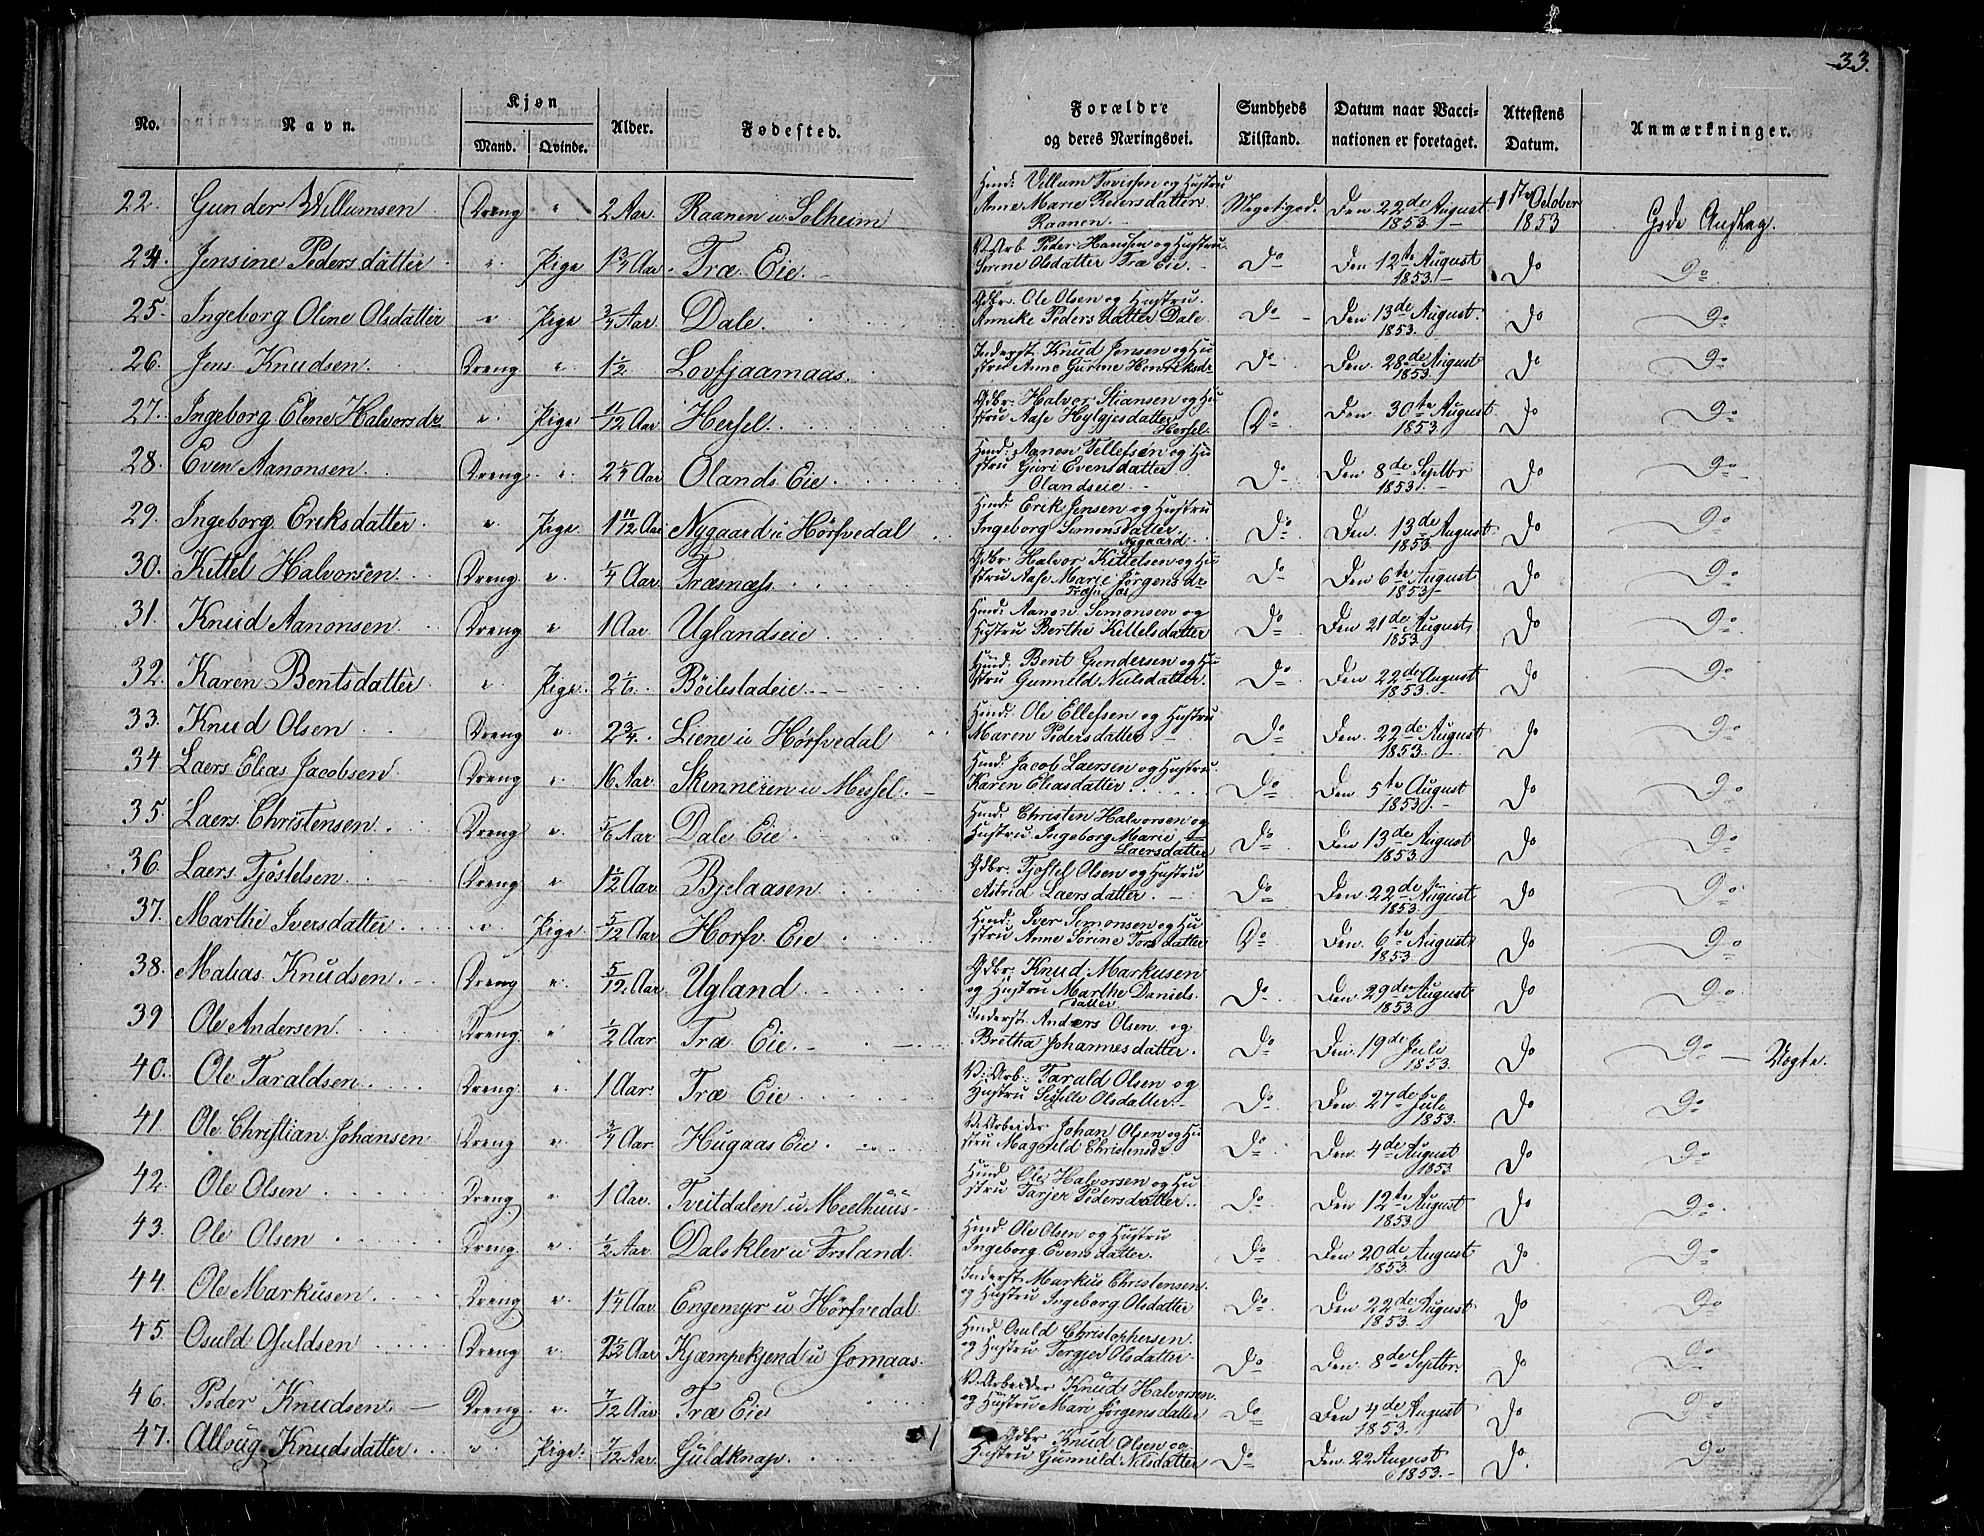 33.
No. Navn. Kjøn Mand. Qvinde. Alder. Fødested. Forældre og deres Næringsvei. Sundheds Tilstand. Datum naar Vaccinationen er foretaget. Attestens Datum. Anmærkninger.
22. Gunder Willumsen Dreng " 2 Aar. Raanen u Solheim Huusm: Villum Tovissen og Hustru Anne Marie Pedersdatter Raanen. Meget god. Den 22de August 1853. 1ste October 1853 Gode Anslag.
24. Jensine Pedersdatter " Pige 1 3/4 Aar. Træ Eie. V: Arb. Peder Hanssen og Hustru Serine Olsdatter Træ Eie. Do Den 12te August 1853. Do Do
25. Ingeborg Oline Olsdatter " Pige 3/4 Aar Dale. Gdbr. Ole Olsen og Hustru Annike Pedersdatter Dale. Do Den 13de August. 1853. Do Do
26. Jens Knudsen. Dreng " 1 1/2 Lovfjaamaas. Inderst Knud Jensen og Hustru Anne Gurine Henriksdr Do Den 28de August 1853. Do Do
27. Ingeborg Elene Halvorsdr " Pige 11/12 Aar Hersel. Gdbr. Halvor Stiansen og Hustru Aase Hylgjesdatter Hersel. Do Den 30te August 1853. Do Do
28. Even Aanonsen. Dreng " 2 1/4 Aar Olands Eie. Aanon Tellefsen og Hustru Guri Evensdatter Olandseie. Do Den 8de Septbr 1853. Do Do
29. Ingeborg Eriksdatter. " Pige. 1 11/12 Aar Nygaard u Hörfvedal Erik Jensen og Hustru Ingeborg Simonsdatter. Nygaard. Do Den 13de August 1853 Do Do
30. Kittel Halvorsen. Dreng " 1/4 Aar Træsnæss. Gdbr. Halvor Kittelsen og Hustru Aase Marie Jörgensdr Træsnæs Do Den 6te August 1853 Do Do
31. Knud Aanonsen. Dreng " 1 Aar Uglandseie Aanon Simonsen og Hustru Berthe Kittelsdatter Do Den 21de August 1853. Do Do
32. Karen Bentsdatter " Pige. 2 1/6. Böilestadeie. Bent Gundersen og Hustru Gunneld Nielsdatter. Do Den 22de August 1853. Do Do
33. Knud Olsen Dreng " 2 3/4. Liene u Hörfvedal Ole Ellefsen og Hustru Maren Pedersdatter. Do Den 22de August 1853. Do Do
34 Laers Elias Jacobsen Dreng " 16 Aar. Skinneren u Messel. Jacob Laersen og Hustru. Karen Eliasdatter. Do Den 5te August 1853. Do Do
35. Laers Christensen. Dreng " 5/6 Aar Dale Eie. Christen Halvorsen og Hustru Ingeborg Marie Laersdatter Do Den 13de August 1853. Do Do
36. Laers Tjöstelsen. Dreng " 1 1/2 Aar Bjelaasen Gdbr. Tjostel Olsen og Hustru Astrid Laersdatter. Do Den 22de August 1853. Do Do
37. Marthe Iversdatter. " Pige 5/12 Aar Horfv. Eie Iver Simonsen og Hustru Anne Sörine Torsdatter Do Den 6te August 1853. Do Do
38. Matias Knudsen. Dreng " 5/12 Aar Ugland Gdbr. Knud Markusen og Hustru Marthe Danielsdatter. Do Den 29de August 1853. Do Do
39 Ole Andersen. Dreng " 1/2 Aar Træ Eie. Inderst Anders Olsen og Bretha Johannesdatter. Do Den 19de Juli 1853. Do Do Ægte.
40. Ole Taraldsen. Dreng " 1 Aar. Træ Eie V: Arb: Tarald Olsen og Hustru Siselle Olsdatter. Do Den 27de Juli 1853. Do Do
41 Ole Christian Johansen Dreng " 3/4 Aar. Hugaas Eie. V. Arbeider Johan Olsen og Hustru Maghild Christensdr Do Den 4de August 1853. Do Do
42. Ole Olsen Dreng " 1 Aar. Tveitdalen u Meelhuus. Ole Halvorsen og Hustru Tarjer Pedersdatter. Do Den 12te August 1853. Do Do
43. Ole Olsen Dreng " 1/2 Aar Dalsklev u Frsland. Ole Olsen og Hustru Ingeborg Evensdatter. Do Den 20de August 1853. Do Do
44. Ole Markusen Dreng " 1 1/4 Aar Engemyr u Hörfvedal Inderst Markus Christensen. og Hustru Ingeborg Olsdatter Do Den 22de August 1853. Do Do
45. Osuld Osuldsen Dreng " Aar Kjæmpekjend u Jomaas. Osuld Christophersen. og Hustru Tergjer Olsdatter Do Den 8de Septbr. Do Do
46. Peder Knudsen. Dreng " 7/12 Aar Træ Eie V. Arbeider Knud Halvorsen. og Hustru Mari Jörgensdatter Do Den 4de August 1853. Do Do
47. Alloug Knudsdatter. " Pige. 7/12 Aar. Guldknap. Gdbr Knud Olsen og Hustru Gunneld Nilsdatter Do Den 22 August 1853. Do. Do